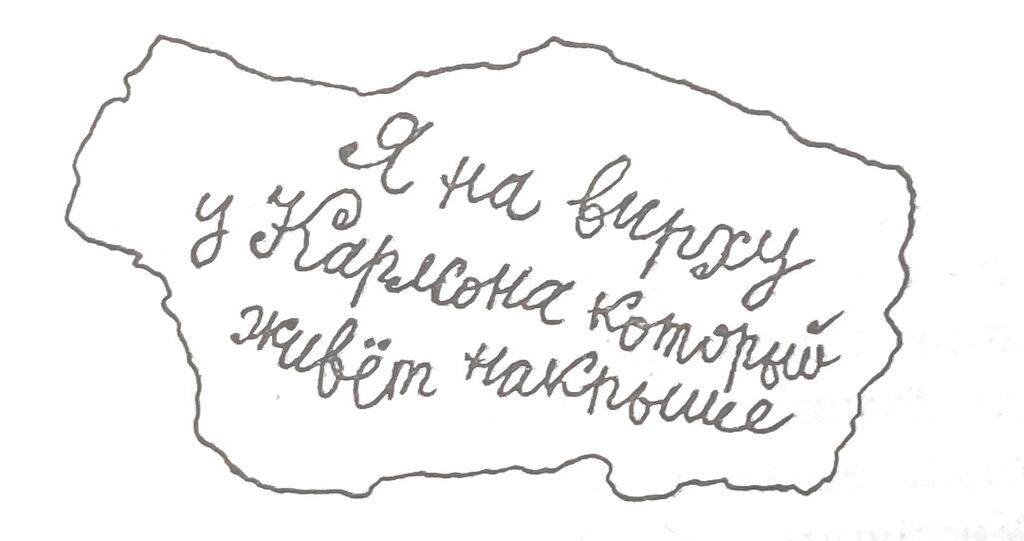 Я на вирху
у Карлсона который
живёт накрыше